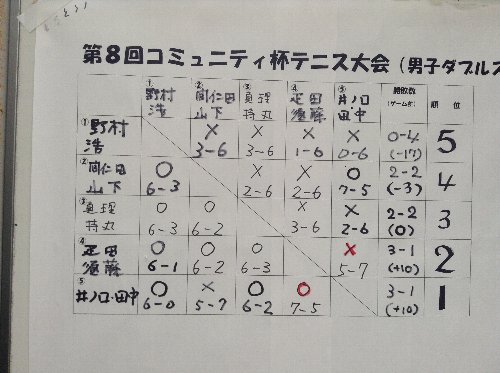 第8回コミュニティ杯テニス大会(男子ダブルス
① 野村 浩 ② 間仁田 山下 ③ 真理 持丸 ④ 疋田 須藤 ⑤ 井ノ口 田中 勝敗数 (ゲーム差) 順位
① 野村 浩 × 3-6 × 3-6 × 1-6 × 0-6 0-4 (-17) 5
② 間仁田 山下 ○ 6-3 × 2-6 × 2-6 ○ 7-5 2-2 (-3) 4
③ 真理 持丸 ○ 6-3 ○ 6-2 × 3-6 × 2-6 2-2 (0) 3
④ 疋田 須藤 ○ 6-1 ○ 6-2 ○ 6-3 × 5-7 3-1 (+10) 2
⑤ 井ノ口・田中 ○ 6-0 × 5-7 ○ 6-2 ○ 7-5 3-1 (+10) 1